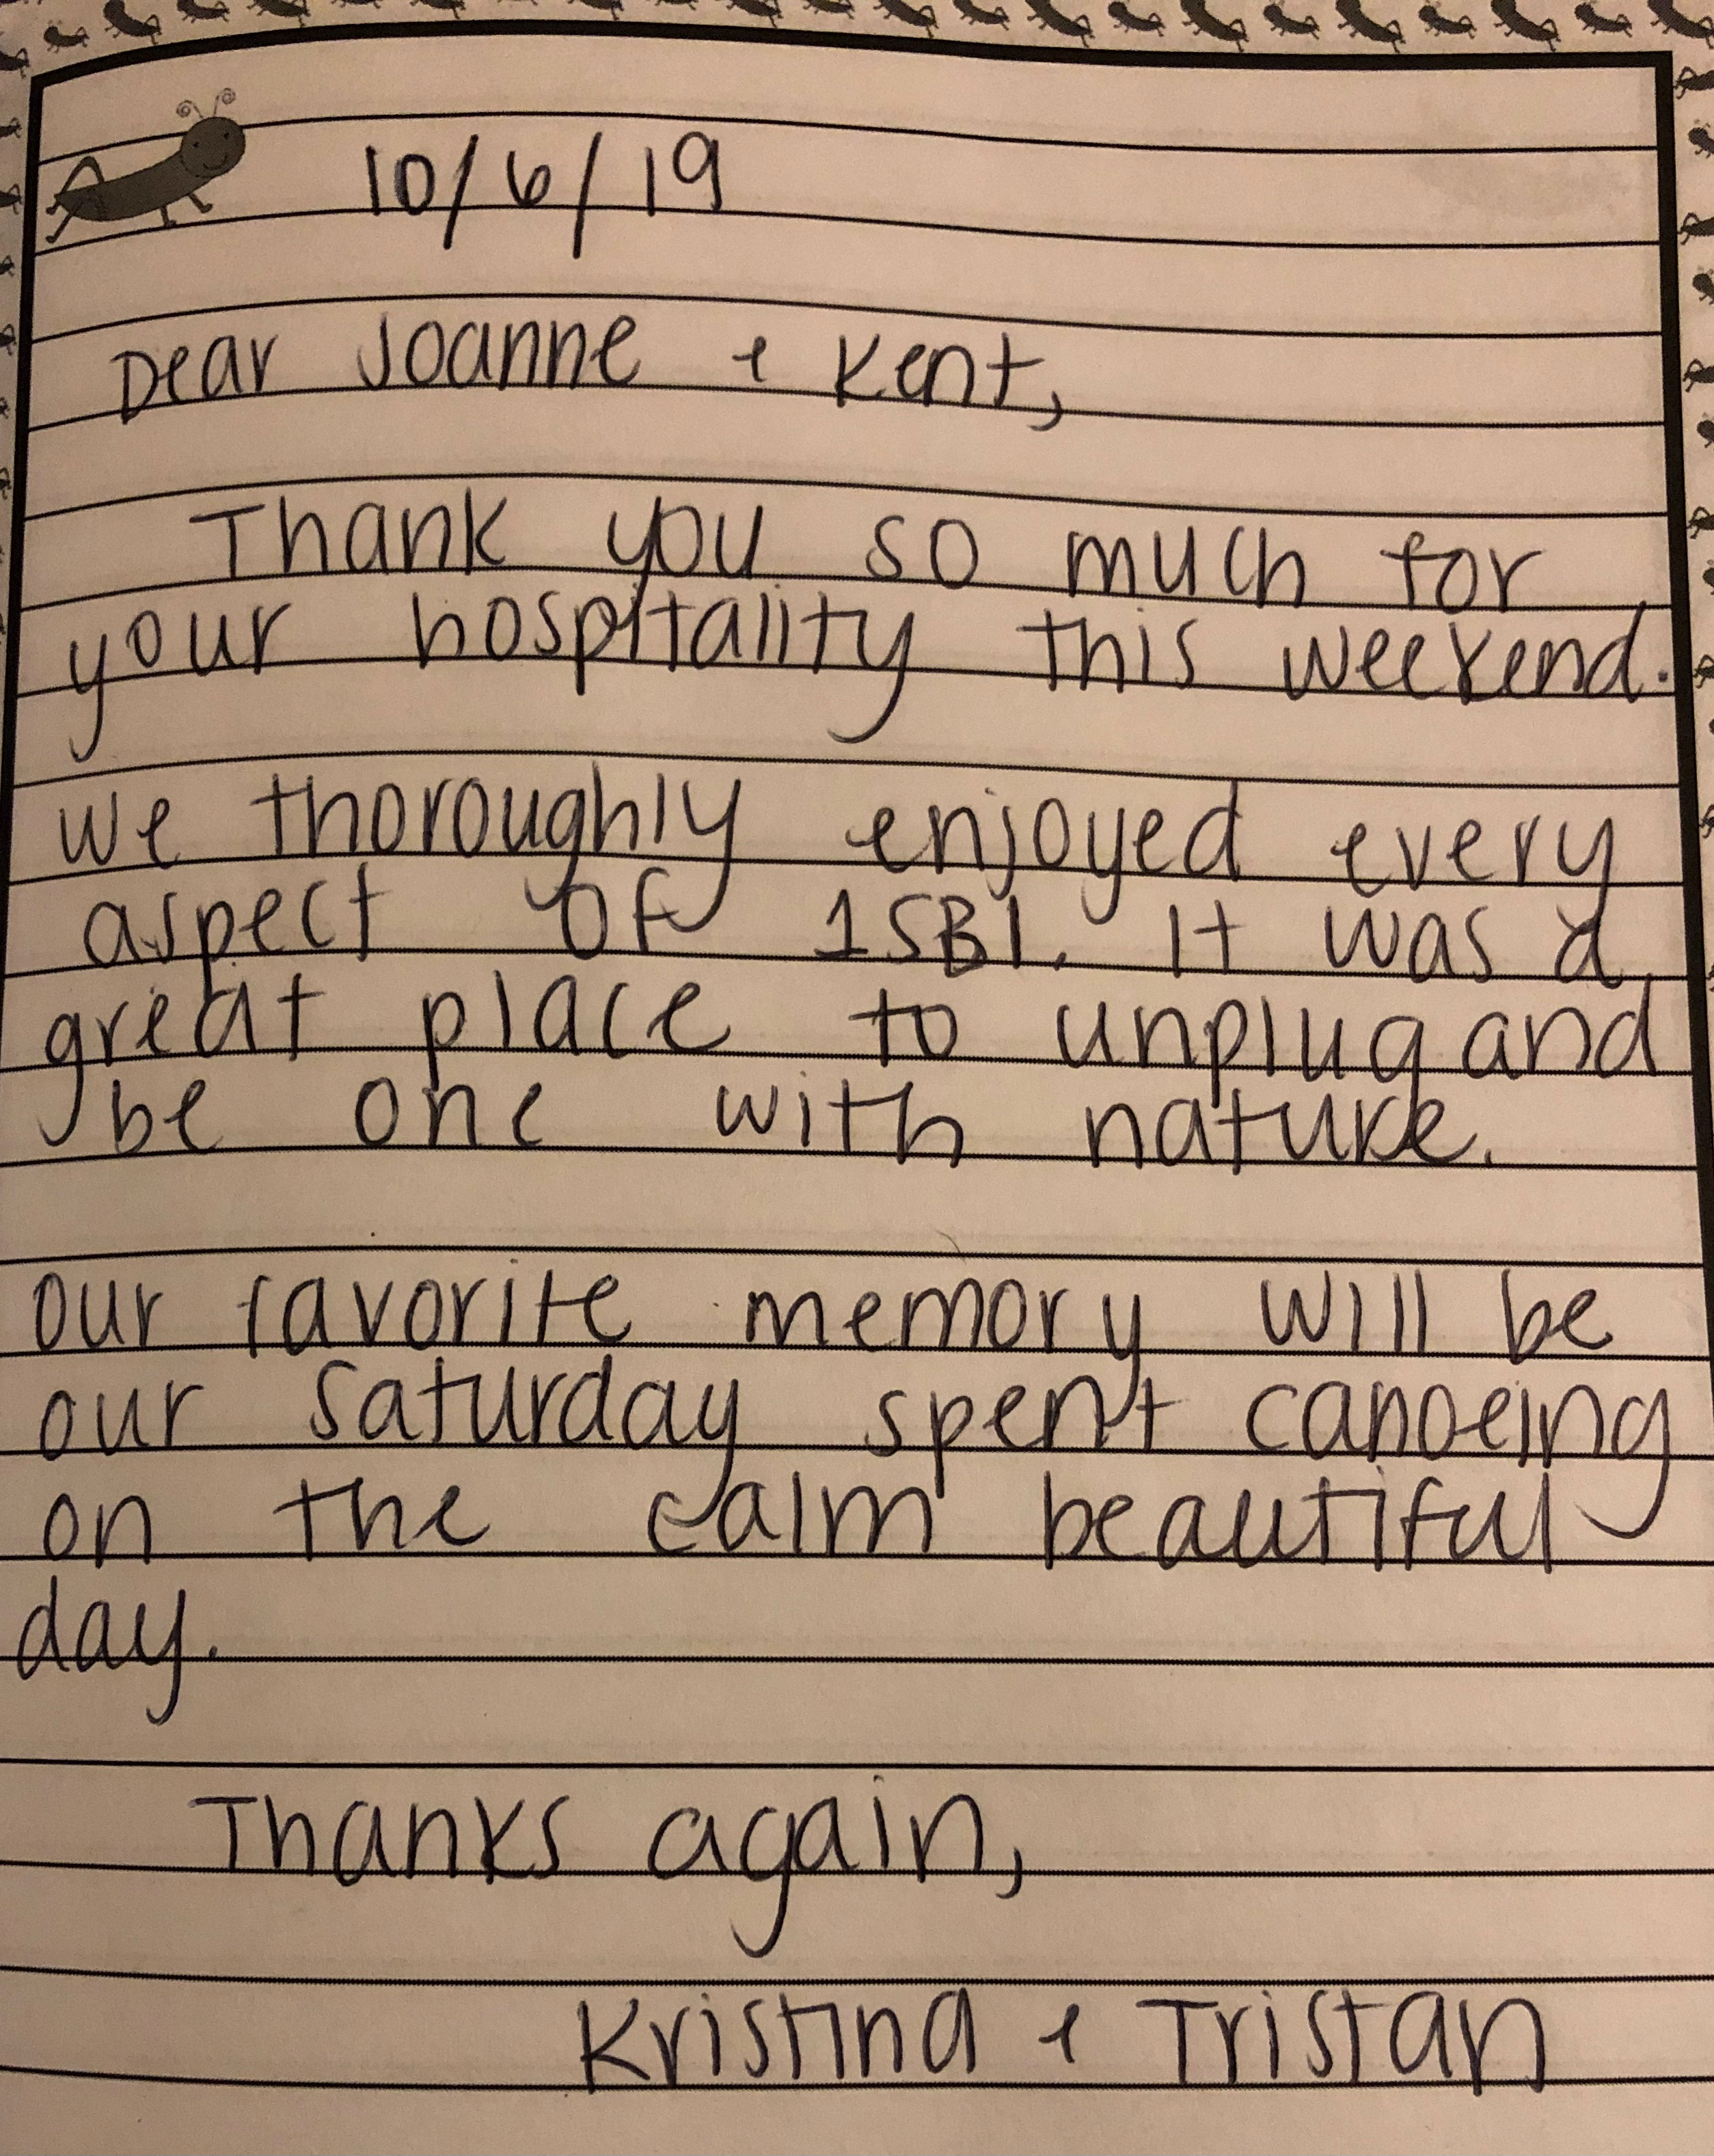 10/6/19
Dear Joanne + Kent,
Thank you so much for
your hospitality this weekend.
we thoroughly enjoyed every
aspect of 1SBI. It was a
great place to unplug and
be one with nature.
our favorite memory will be
our Saturday spent canoeing
on the calm beautiful
day.
Thanks again,
Kristina + Tristan